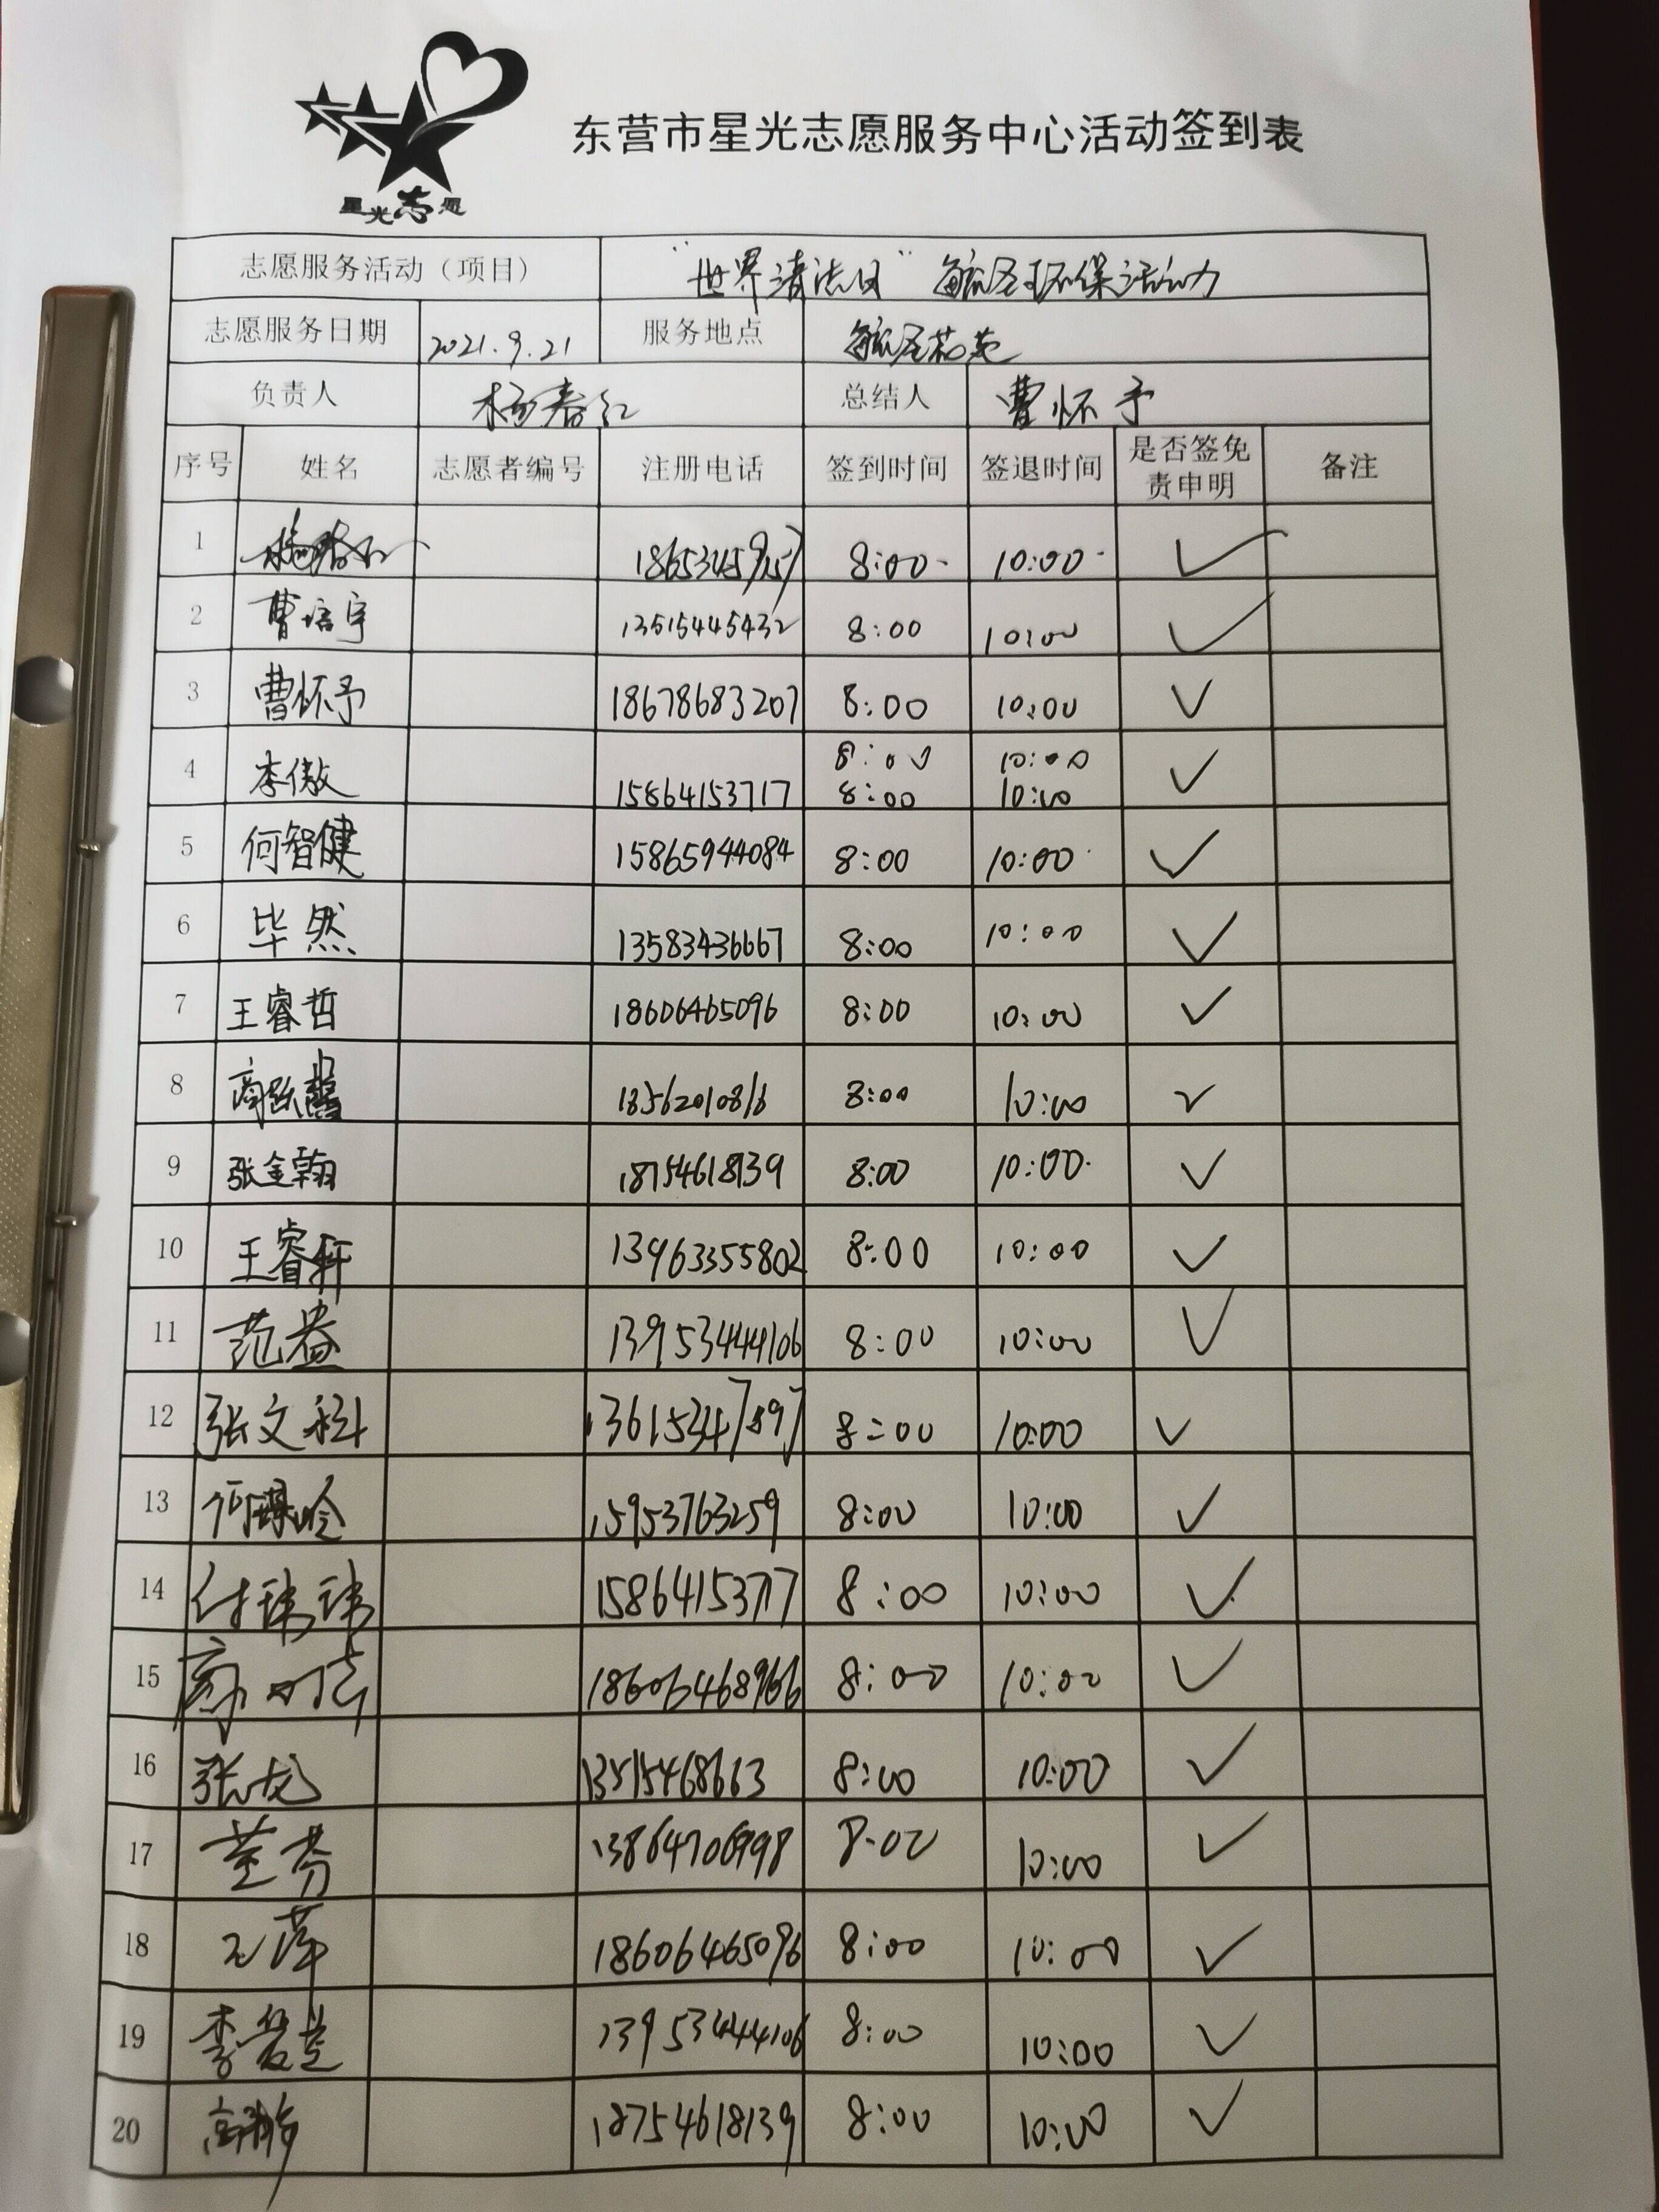 东营市星光志愿服务中心活动签到表
星光志愿
志愿服务活动（项目） “世界清洁日” 环保活动
志愿服务日期 2021.9.21 服务地点
负责人 杨春红 总结人 曹怀予
序号 姓名 志愿者编号 注册电话 签到时间 签退时间 是否签免责申明 备注
1 杨春红 8:00 10:00 ✓
2 曹培宇 13515445432 8:00 10:00 ✓
3 曹怀予 18678683207 8:00 10:00 ✓
4 李傲 15864153717 8:00 8:00 10:00 10:00 ✓
5 何智健 15865944084 8:00 10:00 ✓
6 毕然 13583436667 8:00 10:00 ✓
7 王睿哲 18606465096 8:00 10:00 ✓
8 商跃馨 18562010816 8:00 10:00 ✓
9 张金翰 18754618139 8:00 10:00 ✓
10 王睿轩 13963355802 8:00 10:00 ✓
11 范益 13953444106 8:00 10:00 ✓
12 张文科 13615347897 8:00 10:00 ✓
13 15953763259 8:00 10:00 ✓
14 付玮玮 15864153717 8:00 10:00 ✓
15 18606468966 8:00 10:00 ✓
16 张龙 13515468663 8:00 10:00 ✓
17 董芬 13864706998 8:00 10:00 ✓
18 王萍 18606465096 8:00 10:00 ✓
19 李爱芝 13953444106 8:00 10:00 ✓
20 18754618139 8:00 10:00 ✓